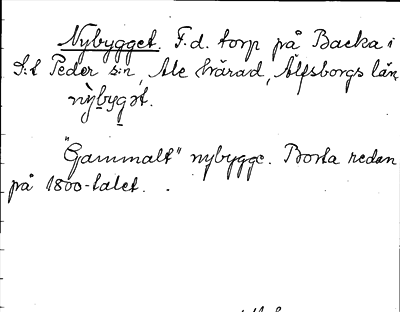 Nybygget. F.d. torp på Backa i
S:t Peder s:n, Ale härad, Älfsborgs län
nỳbygət.
"Gammalt" nybygge. Borta redan
på 1800-talet.